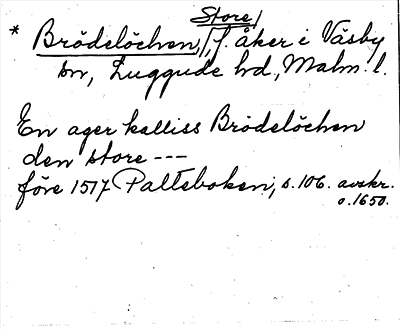 Store/
* Brödelöchen,/, f. åker i Väsby
sn, Luggude hd, Malm. l.
En ager kalliss Brödelöchen
den store ---
före 1517 Palteboken, s. 106. avskr.
o. 1650.